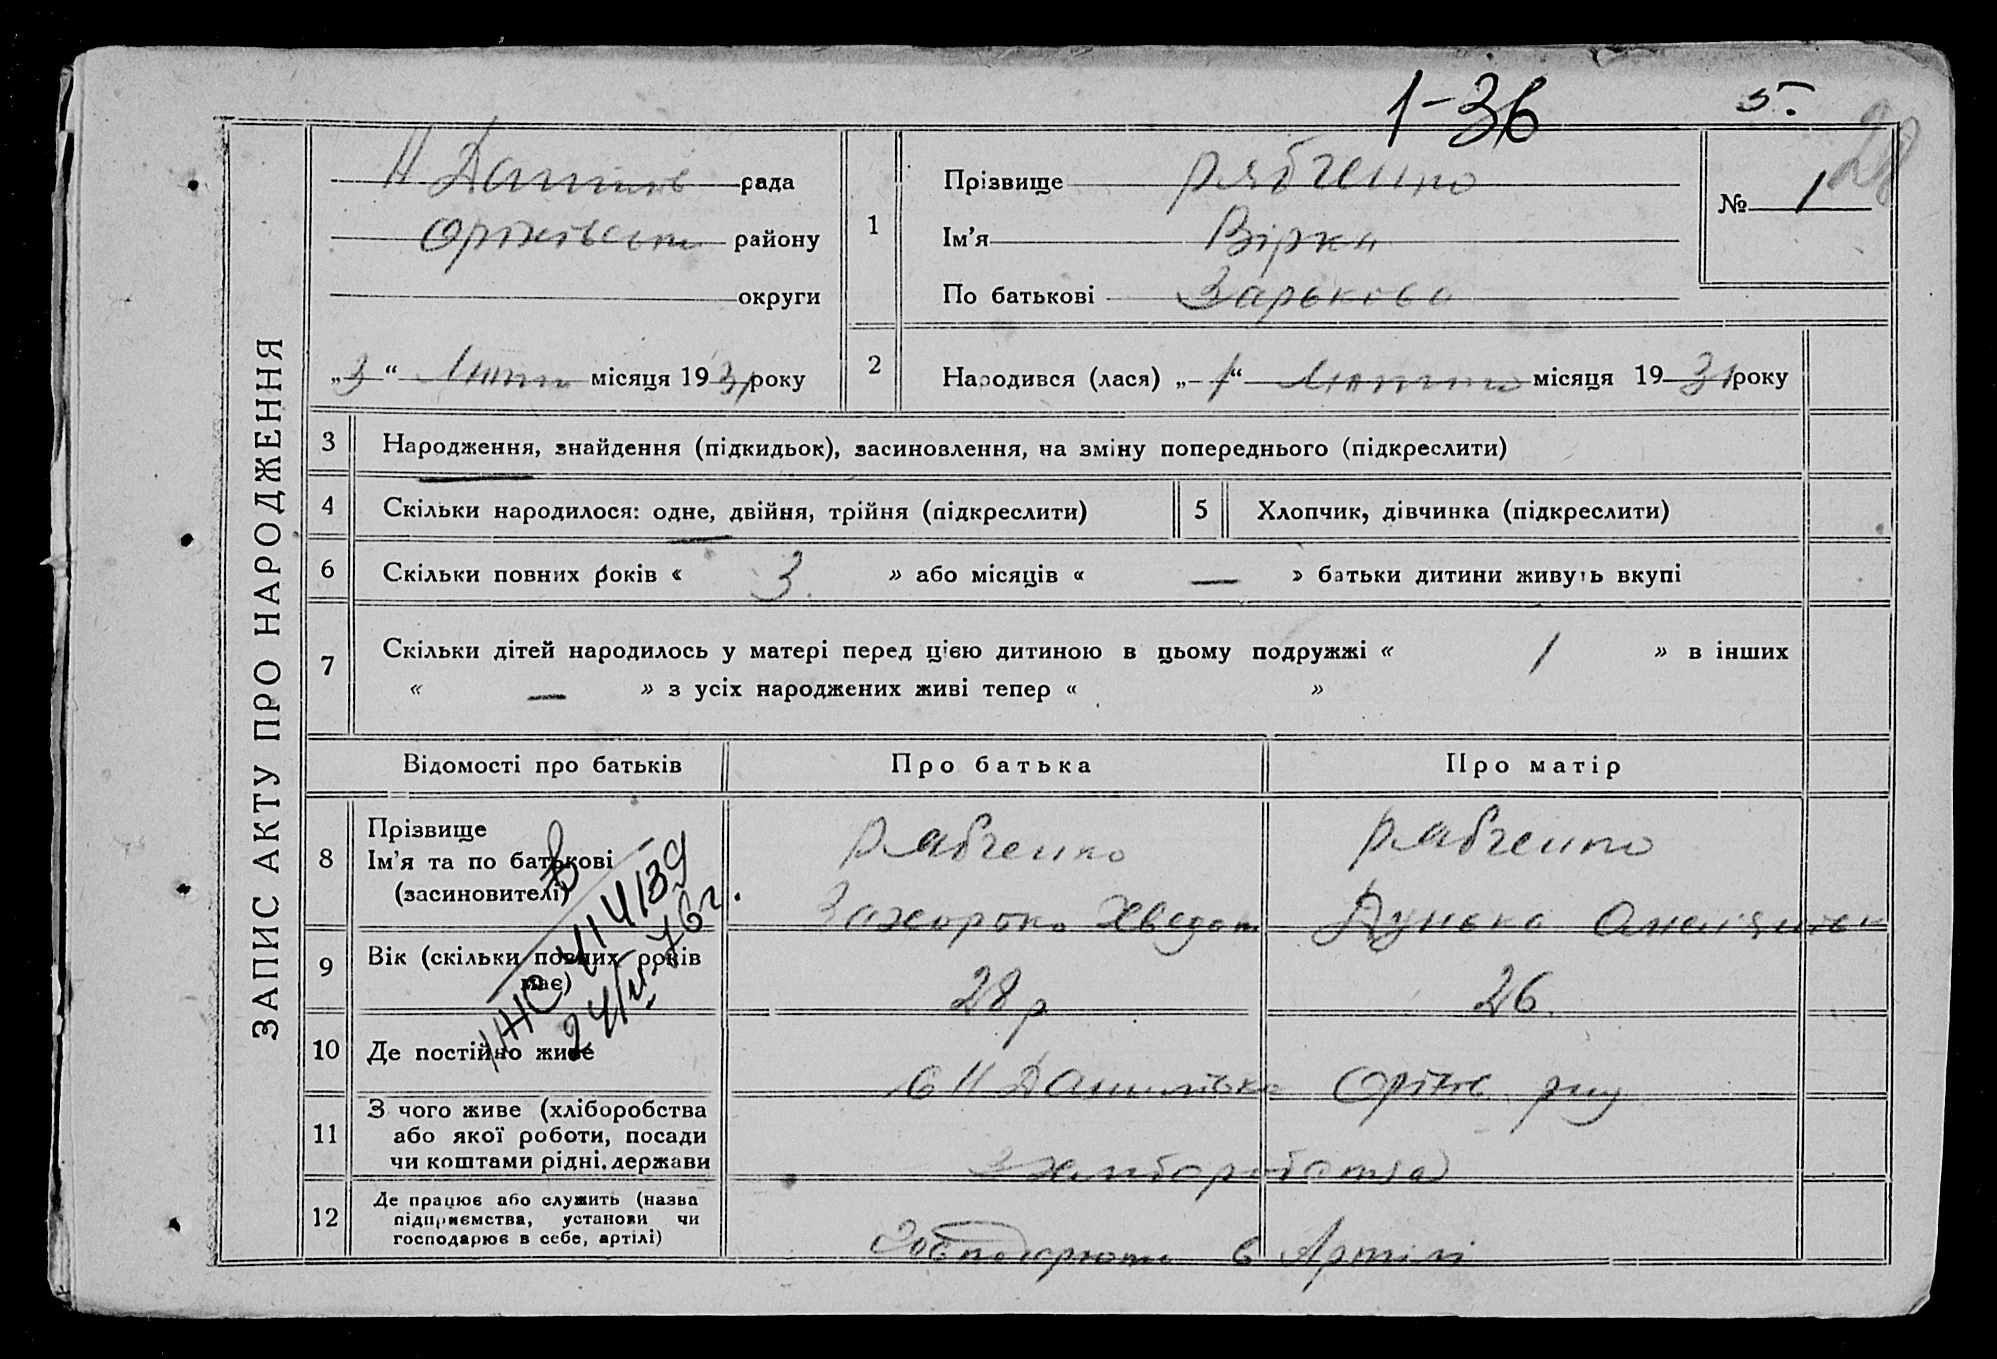 1-36
5
28
ЗАПИС АКТУ ПРО НАРОДЖЕННЯ
рада
району
округи
„3“ місяця 1931 року
1
Прізвище Рябченко
Ім’я Вірка
По батькові Зарькова
№ 1
2
Народився (лася) „1“ місяця 1931 року
3 Народження, знайдення (підкидьок), засиновлення, на зміну попереднього (підкреслити)
4 Скільки народилося: одне, двійня, трійня (підкреслити)
5 Хлопчик, дівчинка (підкреслити)
6 Скільки повних років « 3 » або місяців « — » батьки дитини живуть вкупі
7 Скільки дітей народилось у матері перед цією дитиною в цьому подружжі « 1 » в інших
« — » з усіх народжених живі тепер « »
Відомості про батьків Про батька Про матір
8 Прізвище
Ім’я та по батькові
(засиновителі)
Рябченко Рябченко
Дунька
9 Вік (скільки повних років
має)
28 р 26.
10 Де постійно живе
с Н Данилівка
11 З чого живе (хліборобства
або якої роботи, посади
чи коштами рідні, держави
12 Де працює або служить (назва
підприємства, установи чи
господарює в себе, артілі)
в Артілі